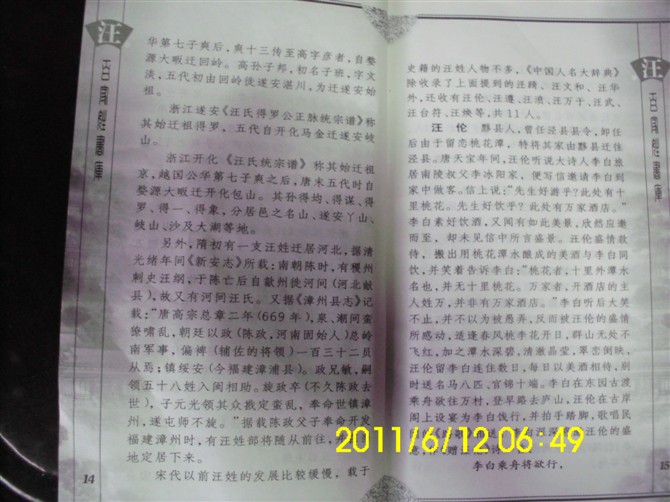 汪
华第七子爽后,爽十三传至高字彦者,自婺
源大畈迁回岭。高孙子邦,初名子班,字文
淡,五代初由回岭徙遂安湛川,为迁遂安始
祖。
浙江遂安《汪氏得罗公正脉统宗谱》称
其始迁祖得罗,五代自开化马金迁遂安岐
山。
浙江开化《汪氏统宗谱》称其始迁
祖,越国公华第七子爽之后,唐末五代时自
婺源大畈迁开化包山。其孙得均、得谋、得
罗、得一、得象,分居邑之名山、遂安丫山、
岐山、沙及大湖等地。
另外,隋初有一支汪姓迁居河北,据清
光绪年间《新安志》所载:南朝陈时,有稷州
刺史汪纲,于陈亡后自歙州徙河间(河北献
县),故又有河间汪氏。又据《漳州县志》记
载:"唐高宗总章二年(669年),泉、潮间蛮
獠啸乱,朝廷以政(陈政,河南固始人)总岭
南军事,偏裨(辅佐的将领)一百三十二员
从焉;镇绥安(今福建漳浦县)。政兄敏,嗣
领五十八姓入闽相助。旋政卒(不久陈政去
世),子元光领其众戡定蛮乱,奉命世镇漳
州,遂屯师不旋。"据载陈政父子奉命开发
福建漳州时,有汪姓部将随从前往,并
地定居下来。
宋代以前汪姓的发展比较缓慢,载于
14
汪
史籍的汪姓人物不多,《中国人名大辞典》
除收录了上面提到的汪踦、汪文和、汪华
外,还收有汪伦、汪遵、汪涣、汪万于、汪武、
汪台符、汪焕等,共11人。
汪伦 黟县人,曾任泾县县令,卸任
后由于留恋桃花潭,特将其家由黟县迁往
泾县。唐天宝年间,汪伦听说大诗人李白旅
居南陵叔父李冰阳家,便写信邀请李白到
家中做客。信上说:"先生好游乎?此处有十
里桃花。先生好饮乎?此处有万家酒店。"
李白素好饮酒,又闻有如此美景,欣然应邀
而至,却未见信中所言盛景。汪伦盛情款
待,搬出用桃花潭水酿成的美酒与李白同
饮,并笑着告诉李白:"桃花者,十里外潭水
名也,并无十里桃花。万家者,开酒店的主
人姓万,并非有万家酒店。"李白听后大笑
不止,并不以为被愚弄,反而被汪伦的盛情
所感动,适逢春风桃李花开日,群山无处不
飞红,加之潭水深碧,清澈晶莹,翠峦倒映,
汪伦留李白连住数日,每日以美酒相待,别
时送名马八匹、官锦十端。李白在东园古渡
乘舟欲往万村,登旱路去庐山,汪伦在古岸
阁上设宴为李白饯行,并拍手踏脚,歌唱民
李白乘舟将欲行,
15
2011/6/12 06:49